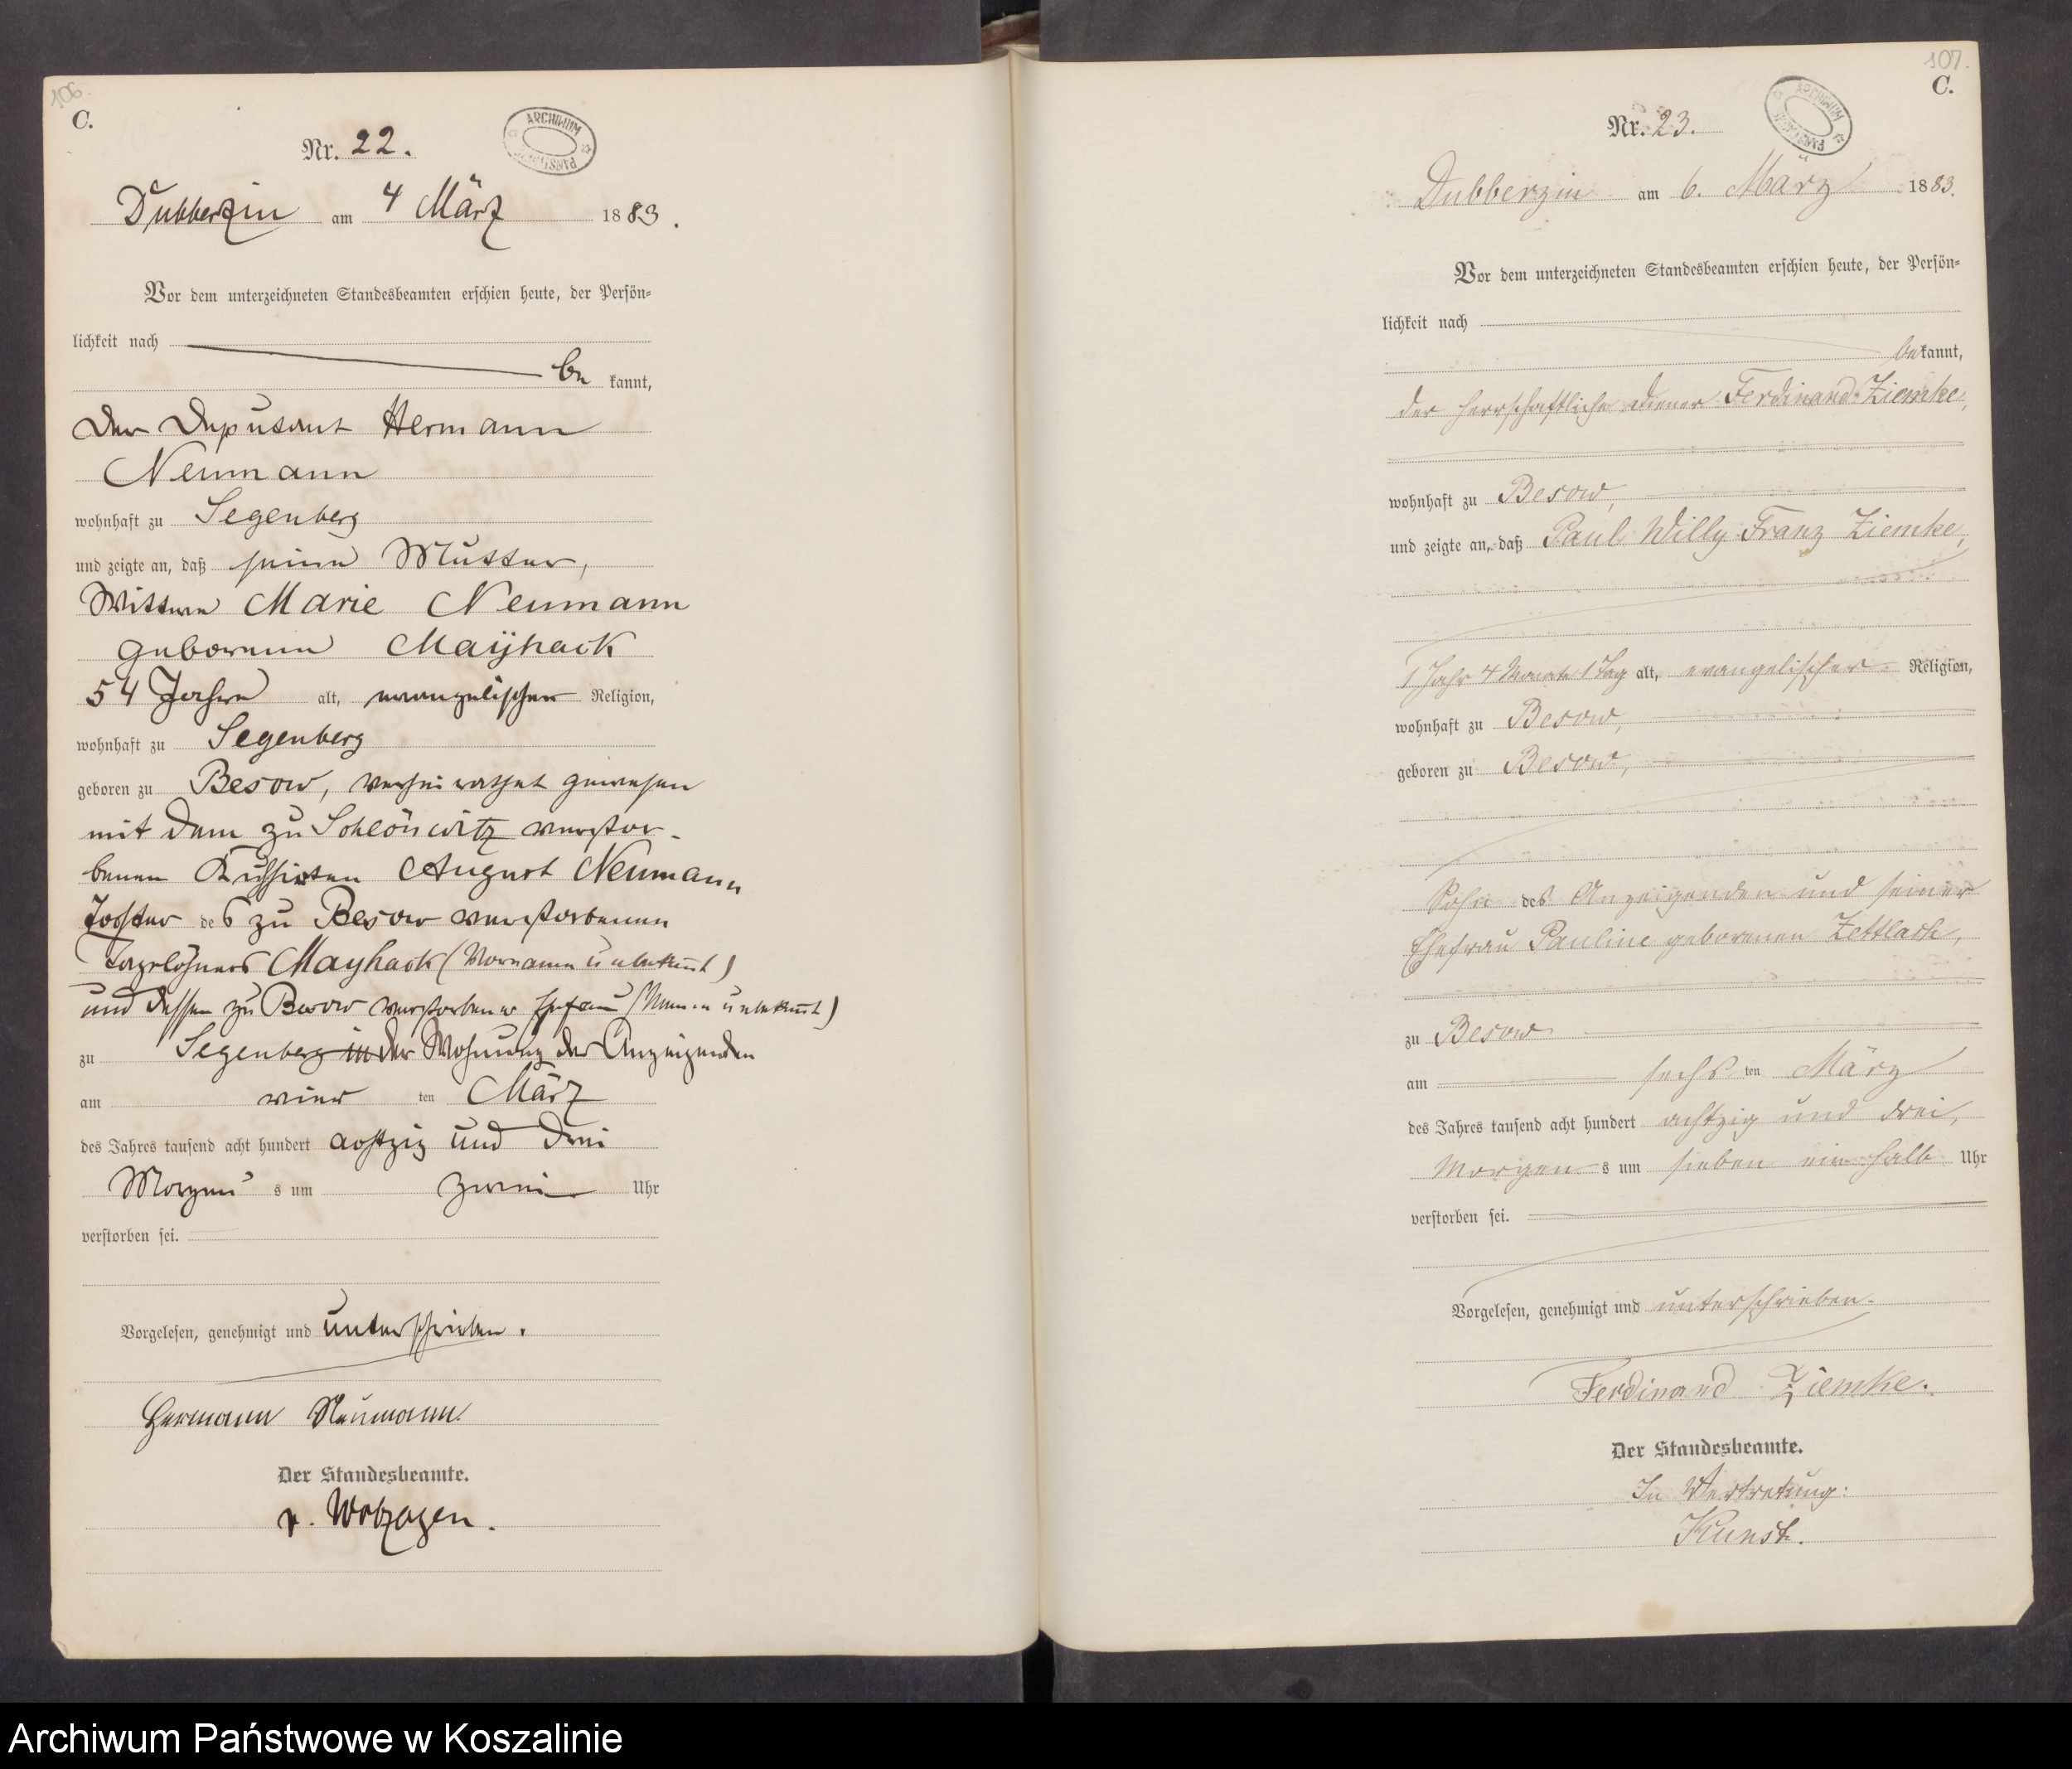 106.
C.
ARCHIWUM PAŃSTWOWE
Nr. 22.
Dubberzin am 4 März 1883.
Vor dem unterzeichneten Standesbeamten erschien heute, der Persön-
lichkeit nach
be kannt,
der Deputant Hermann
Neumann
wohnhaft zu Segenberg
und zeigte an, daß seine Mutter,
Wittwe Marie Neumann
geborenen Mayhack
54 Jahre alt, evangelischer Religion,
wohnhaft zu Segenberg
geboren zu Besow, verheirathet gewesen
mit dem zu Schlönwitz verstor-
benen August Neumann
Tochter des zu Besow verstorbenen
Tagelöhners Mayhack (Vorname unbekannt)
und dessen zu Besow verstorbener Ehefrau (Namen unbekannt)
zu Segenberg in der Wohnung des Anzeigenden
am vier ten März
des Jahres tausend acht hundert achtzig und drei
Morgens s um zwei Uhr
verstorben sei.
Vorgelesen, genehmigt und unterschrieben.
Hermann Neumann
Der Standesbeamte.
v.
107.
C.
ARCHIWUM PAŃSTWOWE
Nr. 23.
Dubberzin am 6. März 1883.
Vor dem unterzeichneten Standesbeamten erschien heute, der Persön-
lichkeit nach
bekannt,
der herrschaftliche Diener Ferdinand Ziemke,
wohnhaft zu Besow,
und zeigte an, daß Paul Willy Franz Ziemke,
1 Jahr 4 Monate 1 Tag alt, evangelischer Religion,
wohnhaft zu Besow,
geboren zu Besow,
Sohn des Anzeigenden und seiner
Ehefrau Pauline geborenen Zettlack,
zu Besow
am sechs ten März
des Jahres tausend acht hundert achtzig und drei,
Morgen s um sieben ein halb Uhr
verstorben sei.
Vorgelesen, genehmigt und unterschrieben.
Ferdinand Ziemke.
Der Standesbeamte.
In Vertretung:
Kunst.
Archiwum Państwowe w Koszalinie